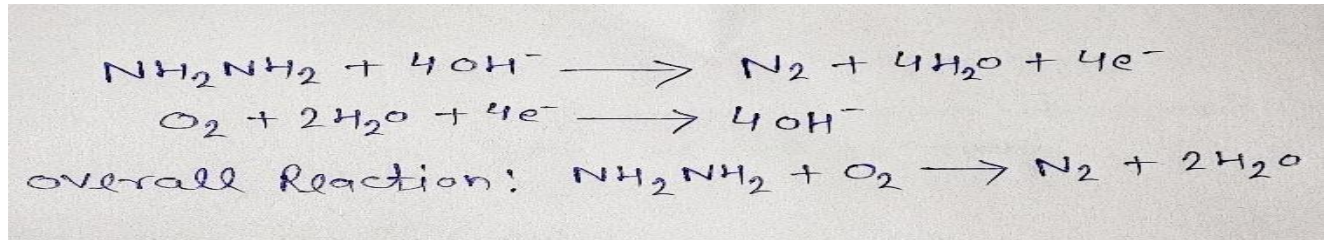 NH₂NH₂ + 4OH⁻ → N₂ + 4H₂O + 4e⁻
O₂ + 2H₂O + 4e⁻ → 4OH⁻
overall Reaction: NH₂NH₂ + O₂ → N₂ + 2H₂O